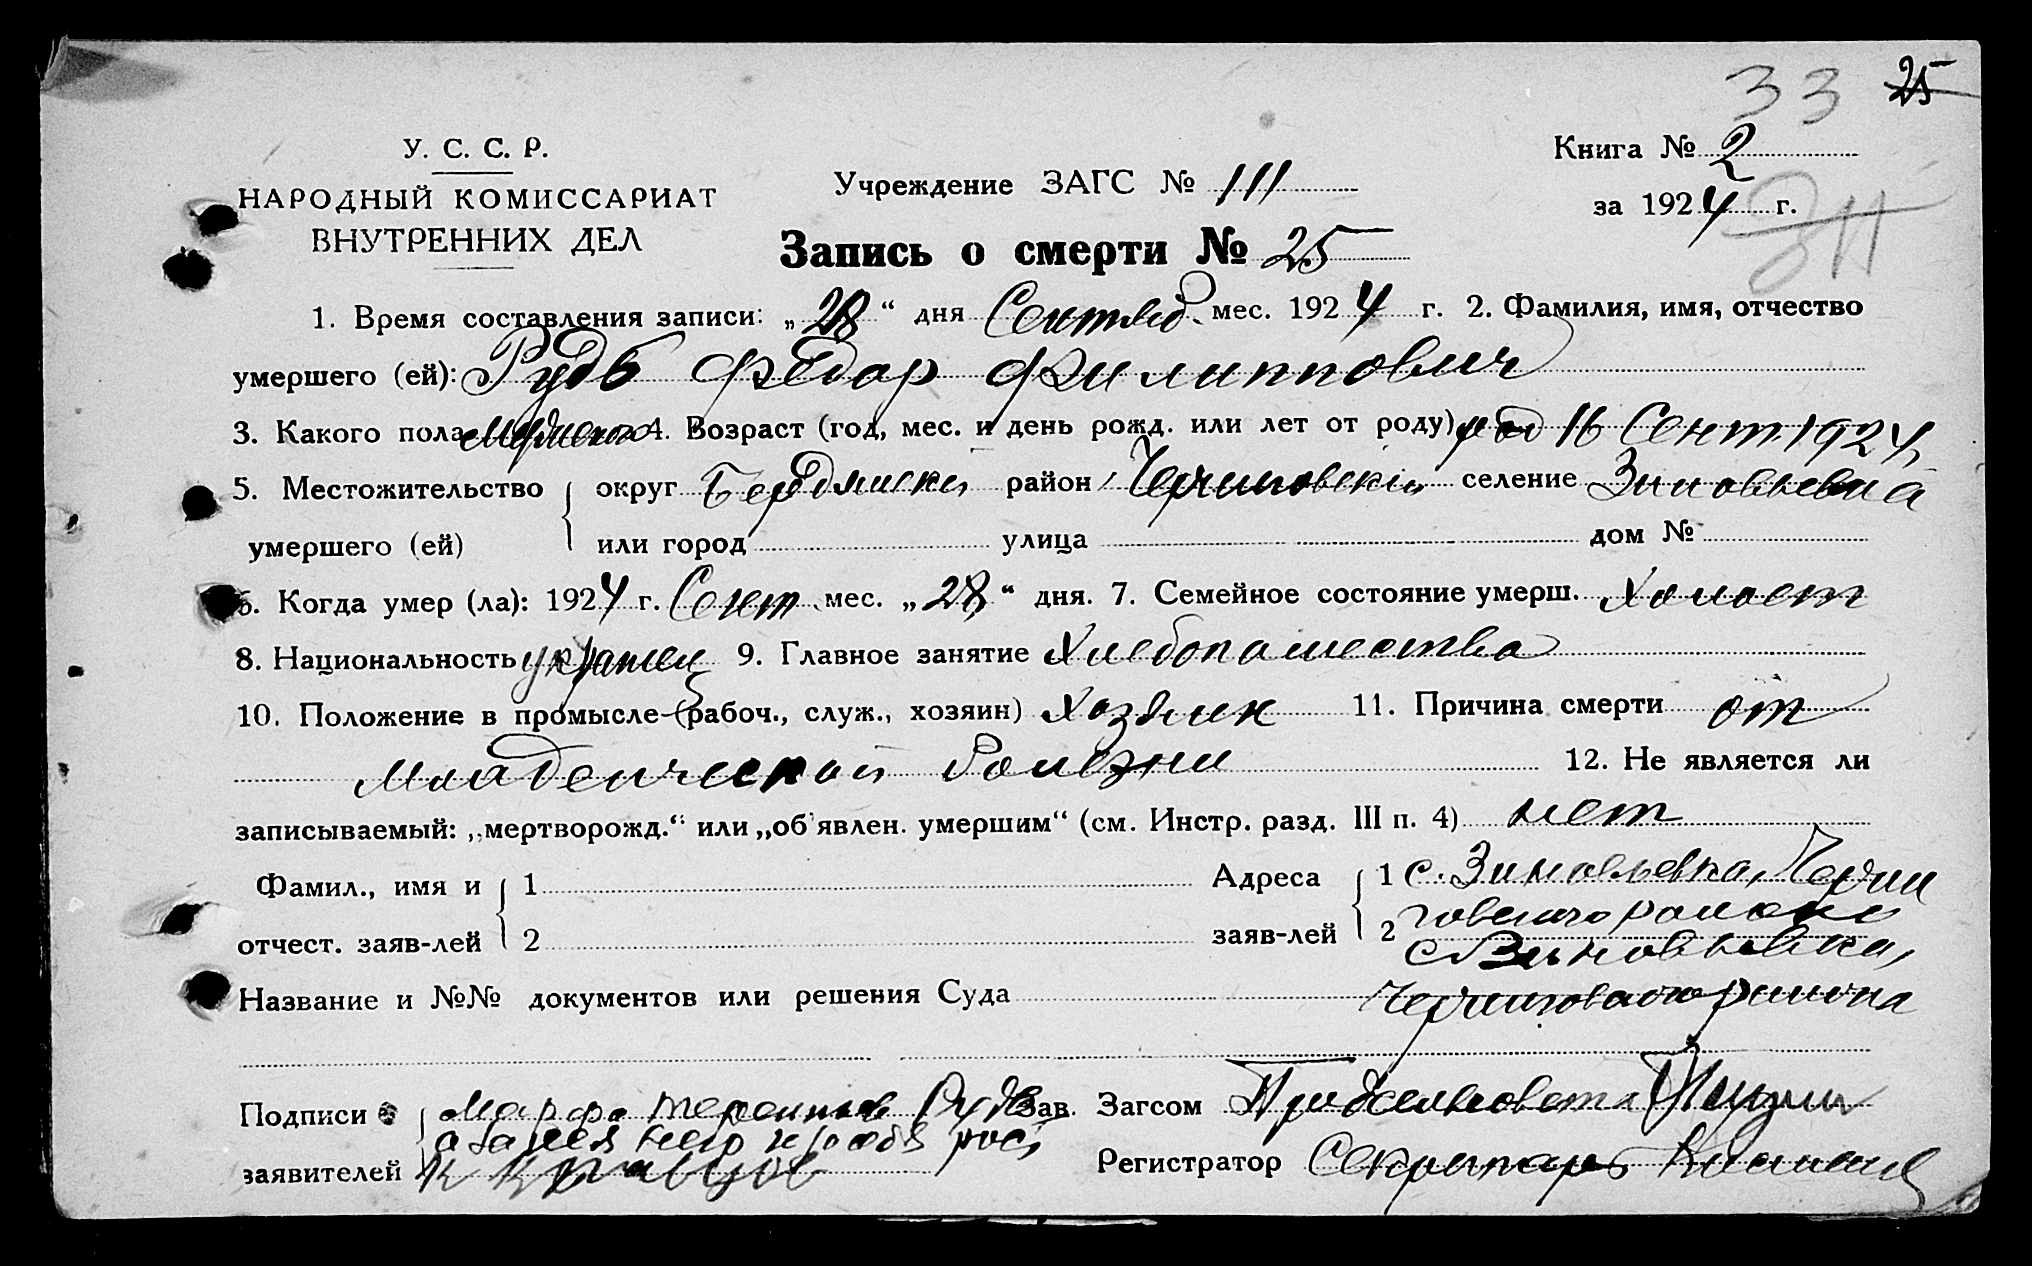 33 25
У. С. С. Р.
НАРОДНЫЙ КОМИССАРИАТ
ВНУТРЕННИХ ДЕЛ
Учреждение ЗАГС № 111
Книга № 2
за 1924 г.
Запись о смерти № 25
1. Время составления записи: „28“ дня Сентяб. мес. 1924 г. 2. Фамилия, имя, отчество
умершего (ей): Рудь Федор Филиппович
3. Какого пола мужского 4. Возраст (год, мес. и день рожд. или лет от роду) род 16 Сент. 1924
5. Местожительство округ Бердянски район Черниговский селение Зиновьевка
умершего (ей) или город улица дом №
6. Когда умер (ла): 1924 г. Сент. мес. „28“ дня. 7. Семейное состояние умерш. Холост
8. Национальность украинец 9. Главное занятие Хлебопашества
10. Положение в промысле (рабоч., служ., хозяин) Хозяин 11. Причина смерти от
Младенческой болезни 12. Не является ли
записываемый: „мертворожд.“ или „об'явлен. умершим“ (см. Инстр. разд. III п. 4) нет
Фамил., имя и 1 Адреса 1 с. Зиновьевка, Черни
отчест. заяв-лей 2 заяв-лей 2 говского района
с Зиновьевка,
Название и №№ документов или решения Суда Черниговского района
Подписи Марфа Рудь Зав. Загсом Предсельсовета
а за нея негр по
заявителей К Кравцов Регистратор Секретарь